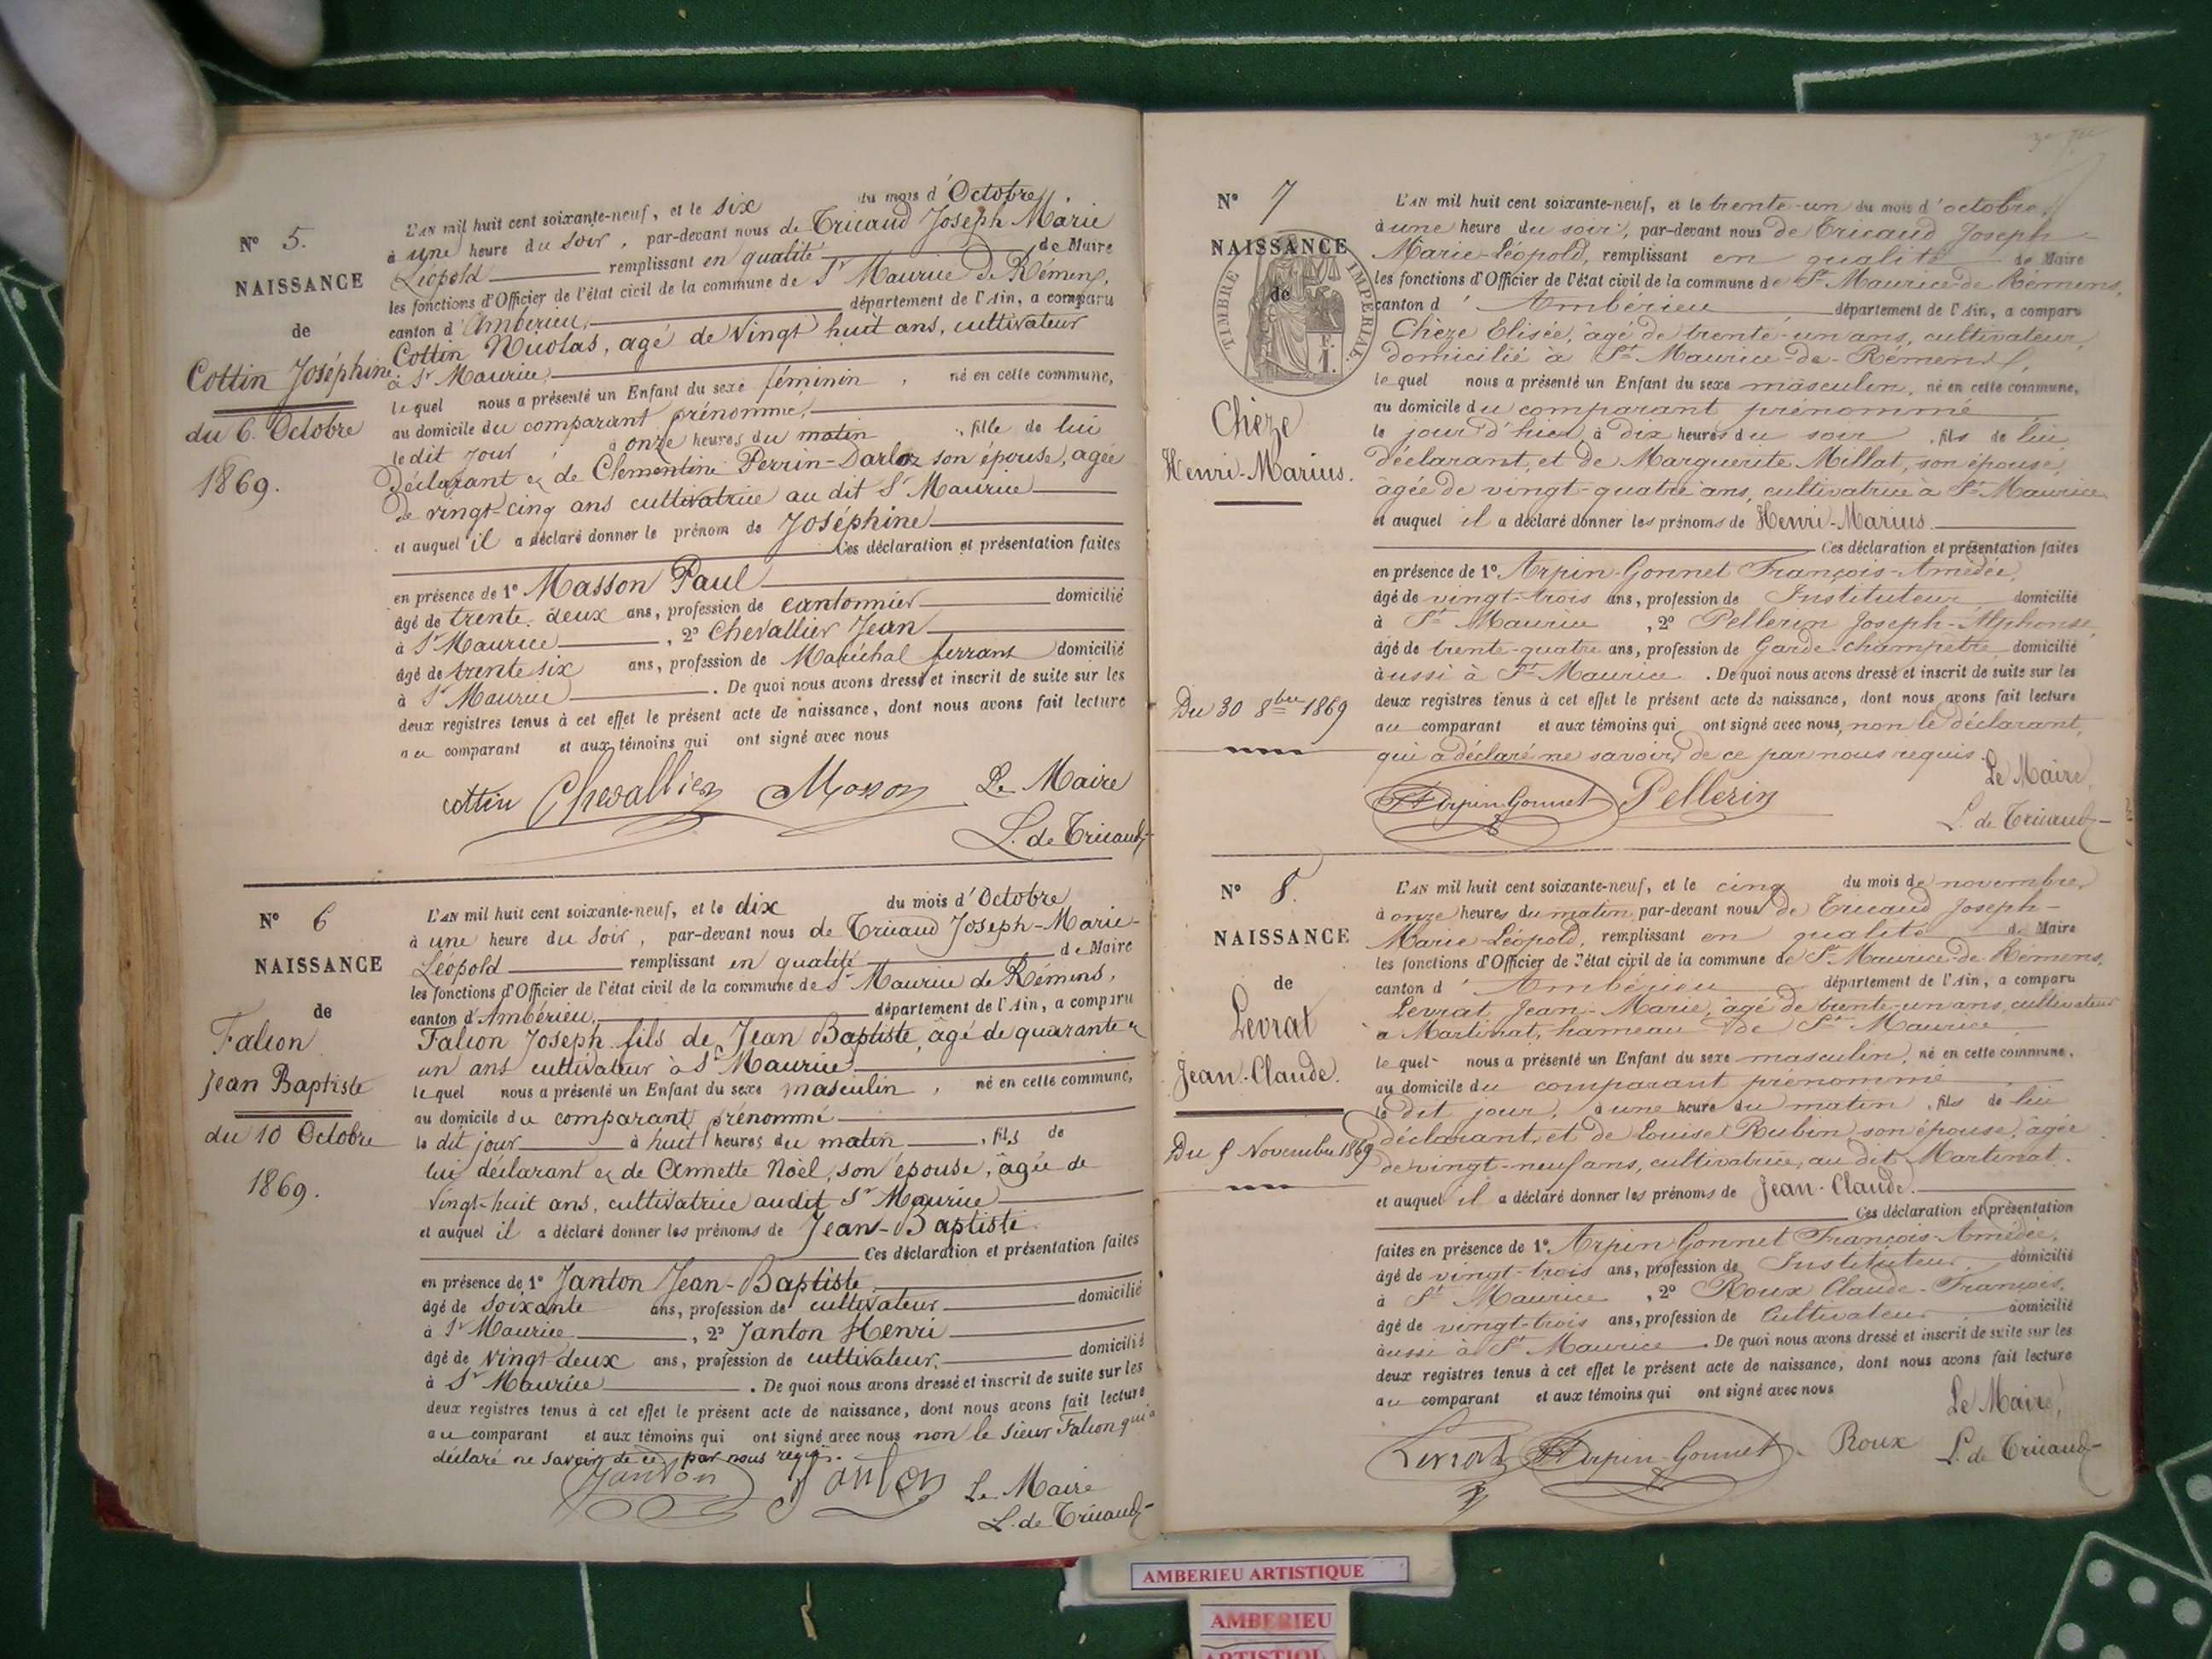 N° 5.
NAISSANCE
de
Cottin Joséphine
du 6. Octobre
1869.
L'AN mil huit cent soixante-neuf, et le six du mois d'Octobre,
à une heure du soir, par-devant nous de Tricaud Joseph Marie
Léopold remplissant en qualité de Maire
les fonctions d'Officier de l'état civil de la commune de St Maurice de Rémens,
canton d'Ambérieu, département de l'Ain, a comparu
Cottin Nicolas, agé de vingt huit ans, cultivateur
à St Maurice,
lequel nous a présenté un Enfant du sexe féminin, né en cette commune,
au domicile du comparant prénommé,
le dit jour à onze heures du matin, fille de lui
déclarant et de Clementine Perrin-Darloz son épouse, agée
de vingt-cinq ans cultivatrice au dit St Maurice
et auquel il a déclaré donner le prénom de Joséphine
Ces déclaration et présentation faites
en présence de 1° Masson Paul
âgé de trente deux ans, profession de cantonnier domicilié
à St Maurice, 2° Chevallier Jean
âgé de trente six ans, profession de Maréchal ferrant domicilié
à St Maurice. De quoi nous avons dressé et inscrit de suite sur les
deux registres tenus à cet effet le présent acte de naissance, dont nous avons fait lecture
au comparant et aux témoins qui ont signé avec nous
cottin Chevallier Masson Le Maire
L. de Tricaud
N° 6
NAISSANCE
de
Falion
Jean Baptiste
du 10 Octobre
1869.
L'AN mil huit cent soixante-neuf, et le dix du mois d'Octobre
à une heure du soir, par-devant nous de Tricaud Joseph-Marie-
Léopold remplissant en qualité de Maire
les fonctions d'Officier de l'état civil de la commune de St Maurice de Rémens,
canton d'Ambérieu, département de l'Ain, a comparu
Falion Joseph fils de Jean Baptiste, âgé de quarante et
un ans cultivateur à St Maurice
lequel nous a présenté un Enfant du sexe masculin, né en cette commune,
au domicile du comparant prénommé
le dit jour à huit heures du matin, fils de
lui déclarant et de Annette Noël, son épouse, âgée de
vingt-huit ans, cultivatrice audit St Maurice
et auquel il a déclaré donner les prénoms de Jean-Baptiste
Ces déclaration et présentation faites
en présence de 1° Janton Jean-Baptiste
âgé de soixante ans, profession de cultivateur domicilié
à St Maurice, 2° Janton Henri
âgé de vingt deux ans, profession de cultivateur, domicilié
à St Maurice. De quoi nous avons dressé et inscrit de suite sur les
deux registres tenus à cet effet le présent acte de naissance, dont nous avons fait lecture
au comparant et aux témoins qui ont signé avec nous non le sieur Falion qui a
déclaré ne savoir de ce par nous requis.
Janton Janton Le Maire
L. de Tricaud
N° 7
NAISSANCE
de
TIMBRE IMPERIAL
Chèze
Henri-Marius.
Du 30 8bre 1869
L'AN mil huit cent soixante-neuf, et le trente-un du mois d'octobre,
à une heure du soir, par-devant nous de Tricaud Joseph-
Marie-Léopold, remplissant en qualité de Maire
les fonctions d'Officier de l'état civil de la commune de St Maurice-de-Rémens,
canton d'Ambérieu département de l'Ain, a comparu
Chèze Elisée, âgé de trente-un ans, cultivateur,
domicilié à St Maurice-de-Rémens,
lequel nous a présenté un Enfant du sexe masculin, né en cette commune,
au domicile du comparant prénommé
le jour d'hier, à dix heures du soir, fils de lui
déclarant, et de Marguerite Millat, son épouse,
âgée de vingt-quatre ans, cultivatrice à St Maurice
et auquel il a déclaré donner les prénoms de Henri-Marius.
Ces déclaration et présentation faites
en présence de 1° Arpin-Gonnet François-Amédée,
âgé de vingt-trois ans, profession de Instituteur domicilié
à St Maurice, 2° Pellerin Joseph-Alphonse,
âgé de trente-quatre ans, profession de Garde-champêtre domicilié
aussi à St Maurice. De quoi nous avons dressé et inscrit de suite sur les
deux registres tenus à cet effet le présent acte de naissance, dont nous avons fait lecture
au comparant et aux témoins qui ont signé avec nous, non le déclarant,
qui a déclaré ne savoir, de ce par nous requis.
Arpin-Gonnet Pellerin Le Maire,
L. de Tricaud
N° 8.
NAISSANCE
de
Levrat
Jean-Claude.
Du 5 Novembre 1869
L'AN mil huit cent soixante-neuf, et le cinq du mois de novembre,
à onze heures du matin, par-devant nous de Tricaud Joseph-
Marie-Léopold, remplissant en qualité de Maire
les fonctions d'Officier de l'état civil de la commune de St Maurice-de-Rémens,
canton d'Ambérieu département de l'Ain, a comparu
Levrat Jean-Marie, âgé de trente-un ans, cultivateur
à Martinat, hameau de St Maurice
lequel nous a présenté un Enfant du sexe masculin, né en cette commune,
au domicile du comparant prénommé
le dit jour, à une heure du matin, fils de lui
déclarant, et de Louise Rubin son épouse, âgée
de vingt-neuf ans, cultivatrice, au dit Martinat.
et auquel il a déclaré donner les prénoms de Jean-Claude.
Ces déclaration et présentation
faites en présence de 1° Arpin Gonnet François-Amédée,
âgé de vingt-trois ans, profession de Instituteur domicilié
à St Maurice, 2° Roux Claude-François,
âgé de vingt-trois ans, profession de Cultivateur domicilié
aussi à St Maurice. De quoi nous avons dressé et inscrit de suite sur les
deux registres tenus à cet effet le présent acte de naissance, dont nous avons fait lecture
au comparant et aux témoins qui ont signé avec nous
Le Maire,
Levrat Arpin-Gonnet Roux L. de Tricaud
AMBERIEU ARTISTIQUE
AMBERIEU
ARTISTIQUE